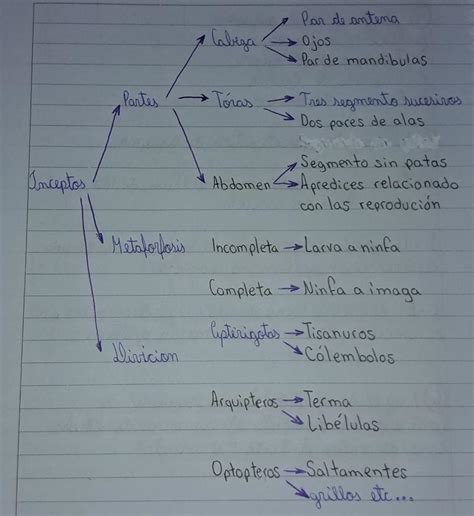 Par de antena
Cabeza → Ojos
Par de mandibulas
Partes → Tóras → Tres segmento sucesivos
Dos pares de alas
Segmento sin patas
Inceptos Abdomen → Apredices relacionado
con las reprodución
Metaforfosis Incompleta → Larva a ninfa
Completa → Ninfa a imaga
Apterigotas → Tisanuros
Divicion Cólembolos
Arquipteros → Terma
Libélulas
Optopteros → Saltamentes
grillos etc...